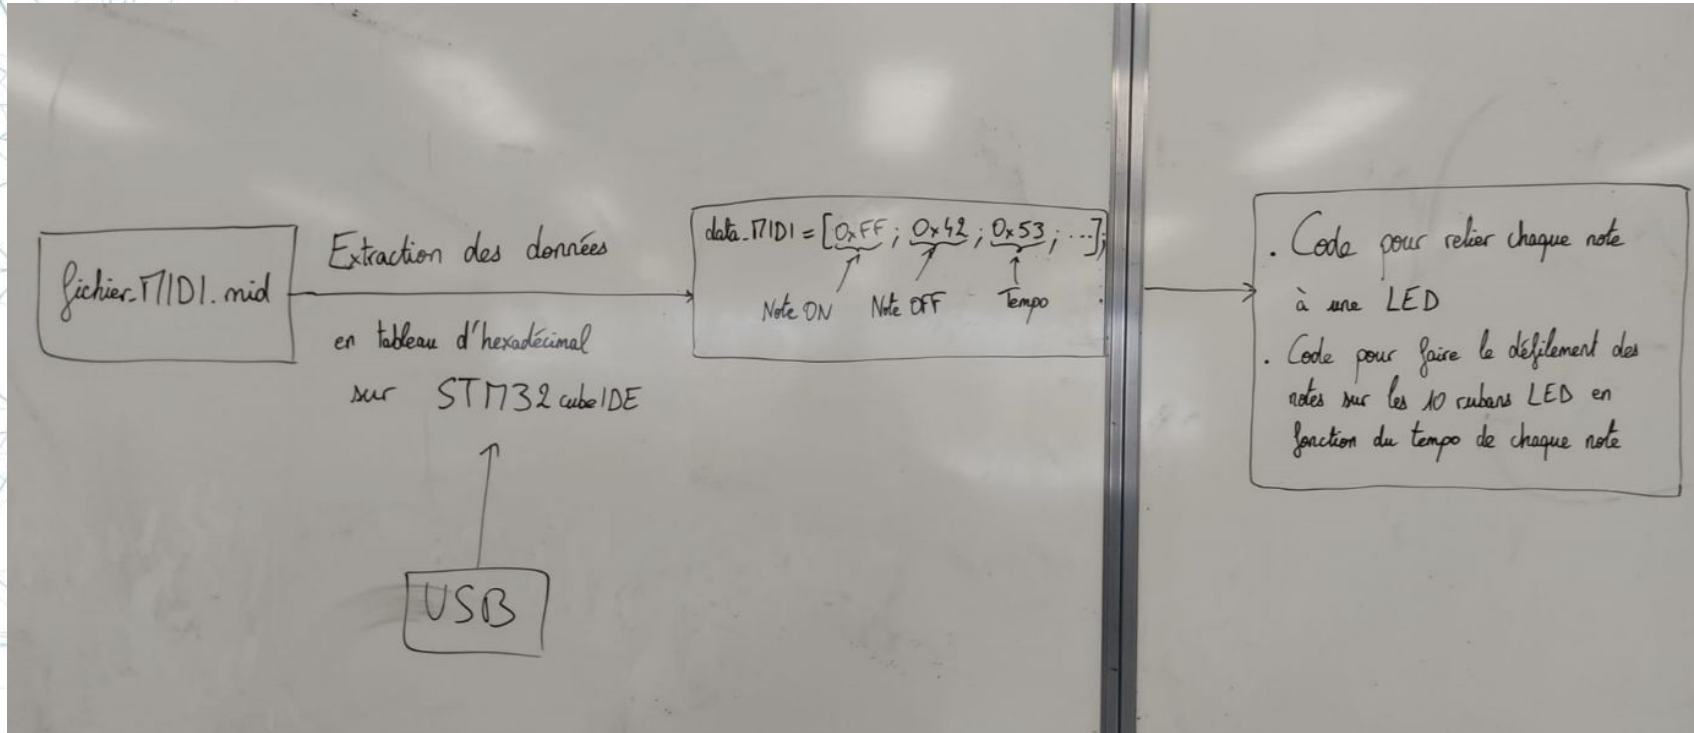 fichier_MIDI.mid
Extraction des données
en tableau d'hexadécimal
sur STM32cubeIDE
USB
data_MIDI = [0xFF ; 0x42 ; 0x53 ; ...];
Note ON Note OFF Tempo
. Code pour relier chaque note
à une LED
. Code pour faire le défilement des
notes sur les 10 rubans LED en
fonction du tempo de chaque note